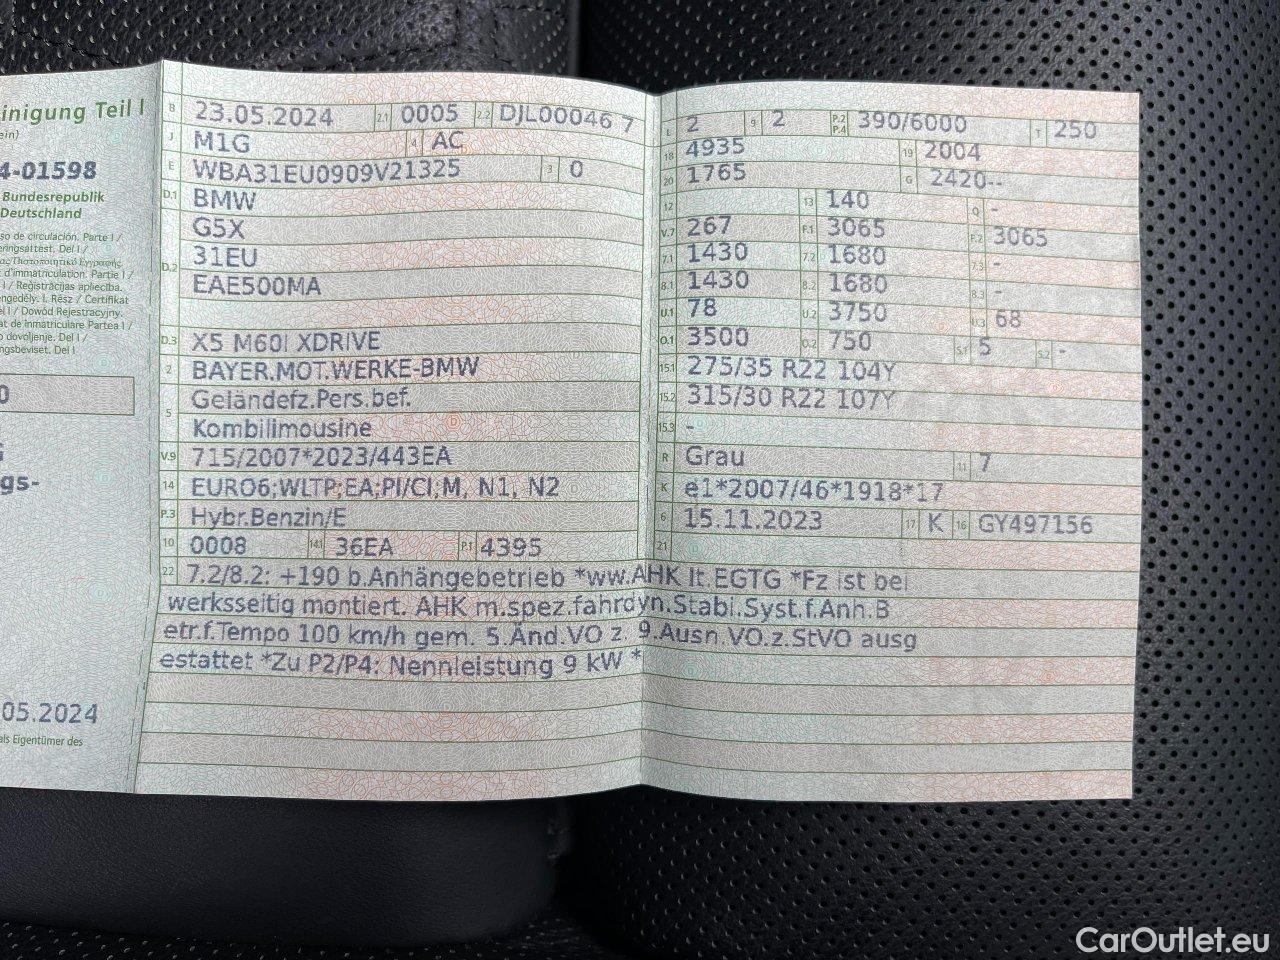 inigung Teil I
ein)
4-01598
Bundesrepublik
Deutschland
so de circulación. Parte I /
eringsattest. Del I /
d'immatriculation. Partie I /
I / Reģistrācijas apliecība.
ngedély. I. Rész / Certifikat
el I / Dowód Rejestracyjny.
at de înmatriculare Partea I /
o dovoljenje. Del I /
ngsbeviset. Del I
0
gs-
05.2024
als Eigentümer des
B 23.05.2024 2.1 0005 2.2 DJL00046 7
J M1G 4 AC
E WBA31EU0909V21325 3 0
D.1 BMW
G5X
D.2 31EU
EAE500MA
D.3 X5 M60I XDRIVE
2 BAYER.MOT.WERKE-BMW
5 Geländefz.Pers.bef.
Kombilimousine
V.9 715/2007*2023/443EA
14 EURO6;WLTP;EA;PI/CI;M, N1, N2
P.3 Hybr.Benzin/E
10 0008 14.1 36EA P.1 4395
L 2 9 2 P.2 P.4 390/6000 T 250
18 4935 19 2004
20 1765 G 2420--
12 13 140 Q -
V.7 267 F.1 3065 F.2 3065
7.1 1430 7.2 1680 7.3 -
8.1 1430 8.2 1680 8.3 -
U.1 78 U.2 3750 U.3 68
O.1 3500 O.2 750 S.1 5 S.2 -
15.1 275/35 R22 104Y
15.2 315/30 R22 107Y
15.3 -
R Grau 11 7
K e1*2007/46*1918*17
6 15.11.2023 17 K 16 GY497156
21
22 7.2/8.2: +190 b.Anhängebetrieb *ww.AHK lt.EGTG *Fz ist bei
werksseitig montiert. AHK m.spez.fahrdyn.Stabi.Syst.f.Anh.B
etr.f.Tempo 100 km/h gem. 5.Änd.VO z. 9.Ausn.VO.z.StVO ausg
estattet *Zu P2/P4: Nennleistung 9 kW *
CarOutlet.eu